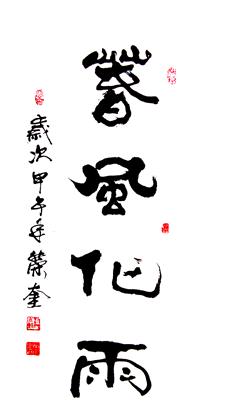 春風化雨
歲次甲午年榮奎